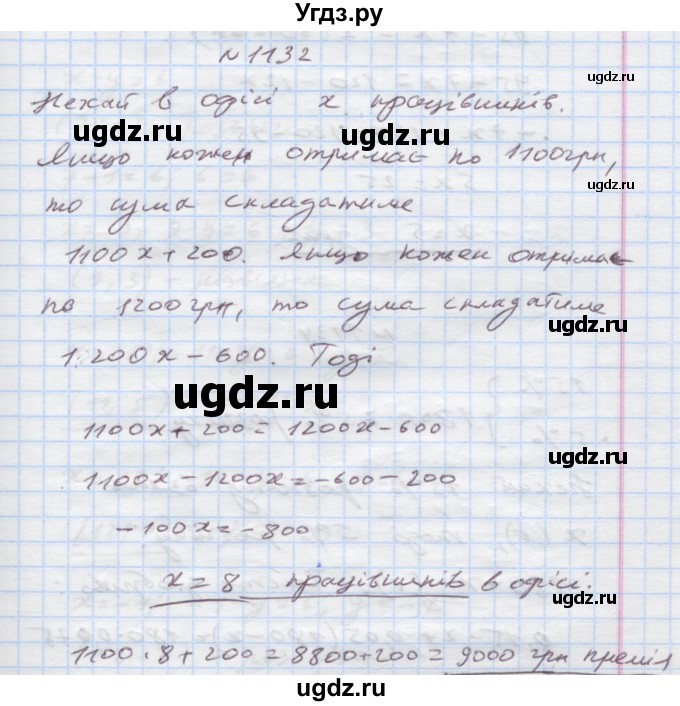 Угдз.ру
N 1132
Нехай в офісі x працівників.
Якщо кожен отримає по 1100 грн,
то сума складатиме
1100x + 200. Якщо кожен отримає
по 1200 грн, то сума складатиме
1200x - 600. Тоді
1100x + 200 = 1200x - 600
1100x - 1200x = -600 - 200
-100x = -800
x = 8 працівників в офісі.
1100 · 8 + 200 = 8800 + 200 = 9000 грн премія
ugdz.ru
ugdz.ru
ugdz.ru
ugdz.ru
ugdz.ru
ugdz.ru
ugdz.ru
ugdz.ru
ugdz.ru